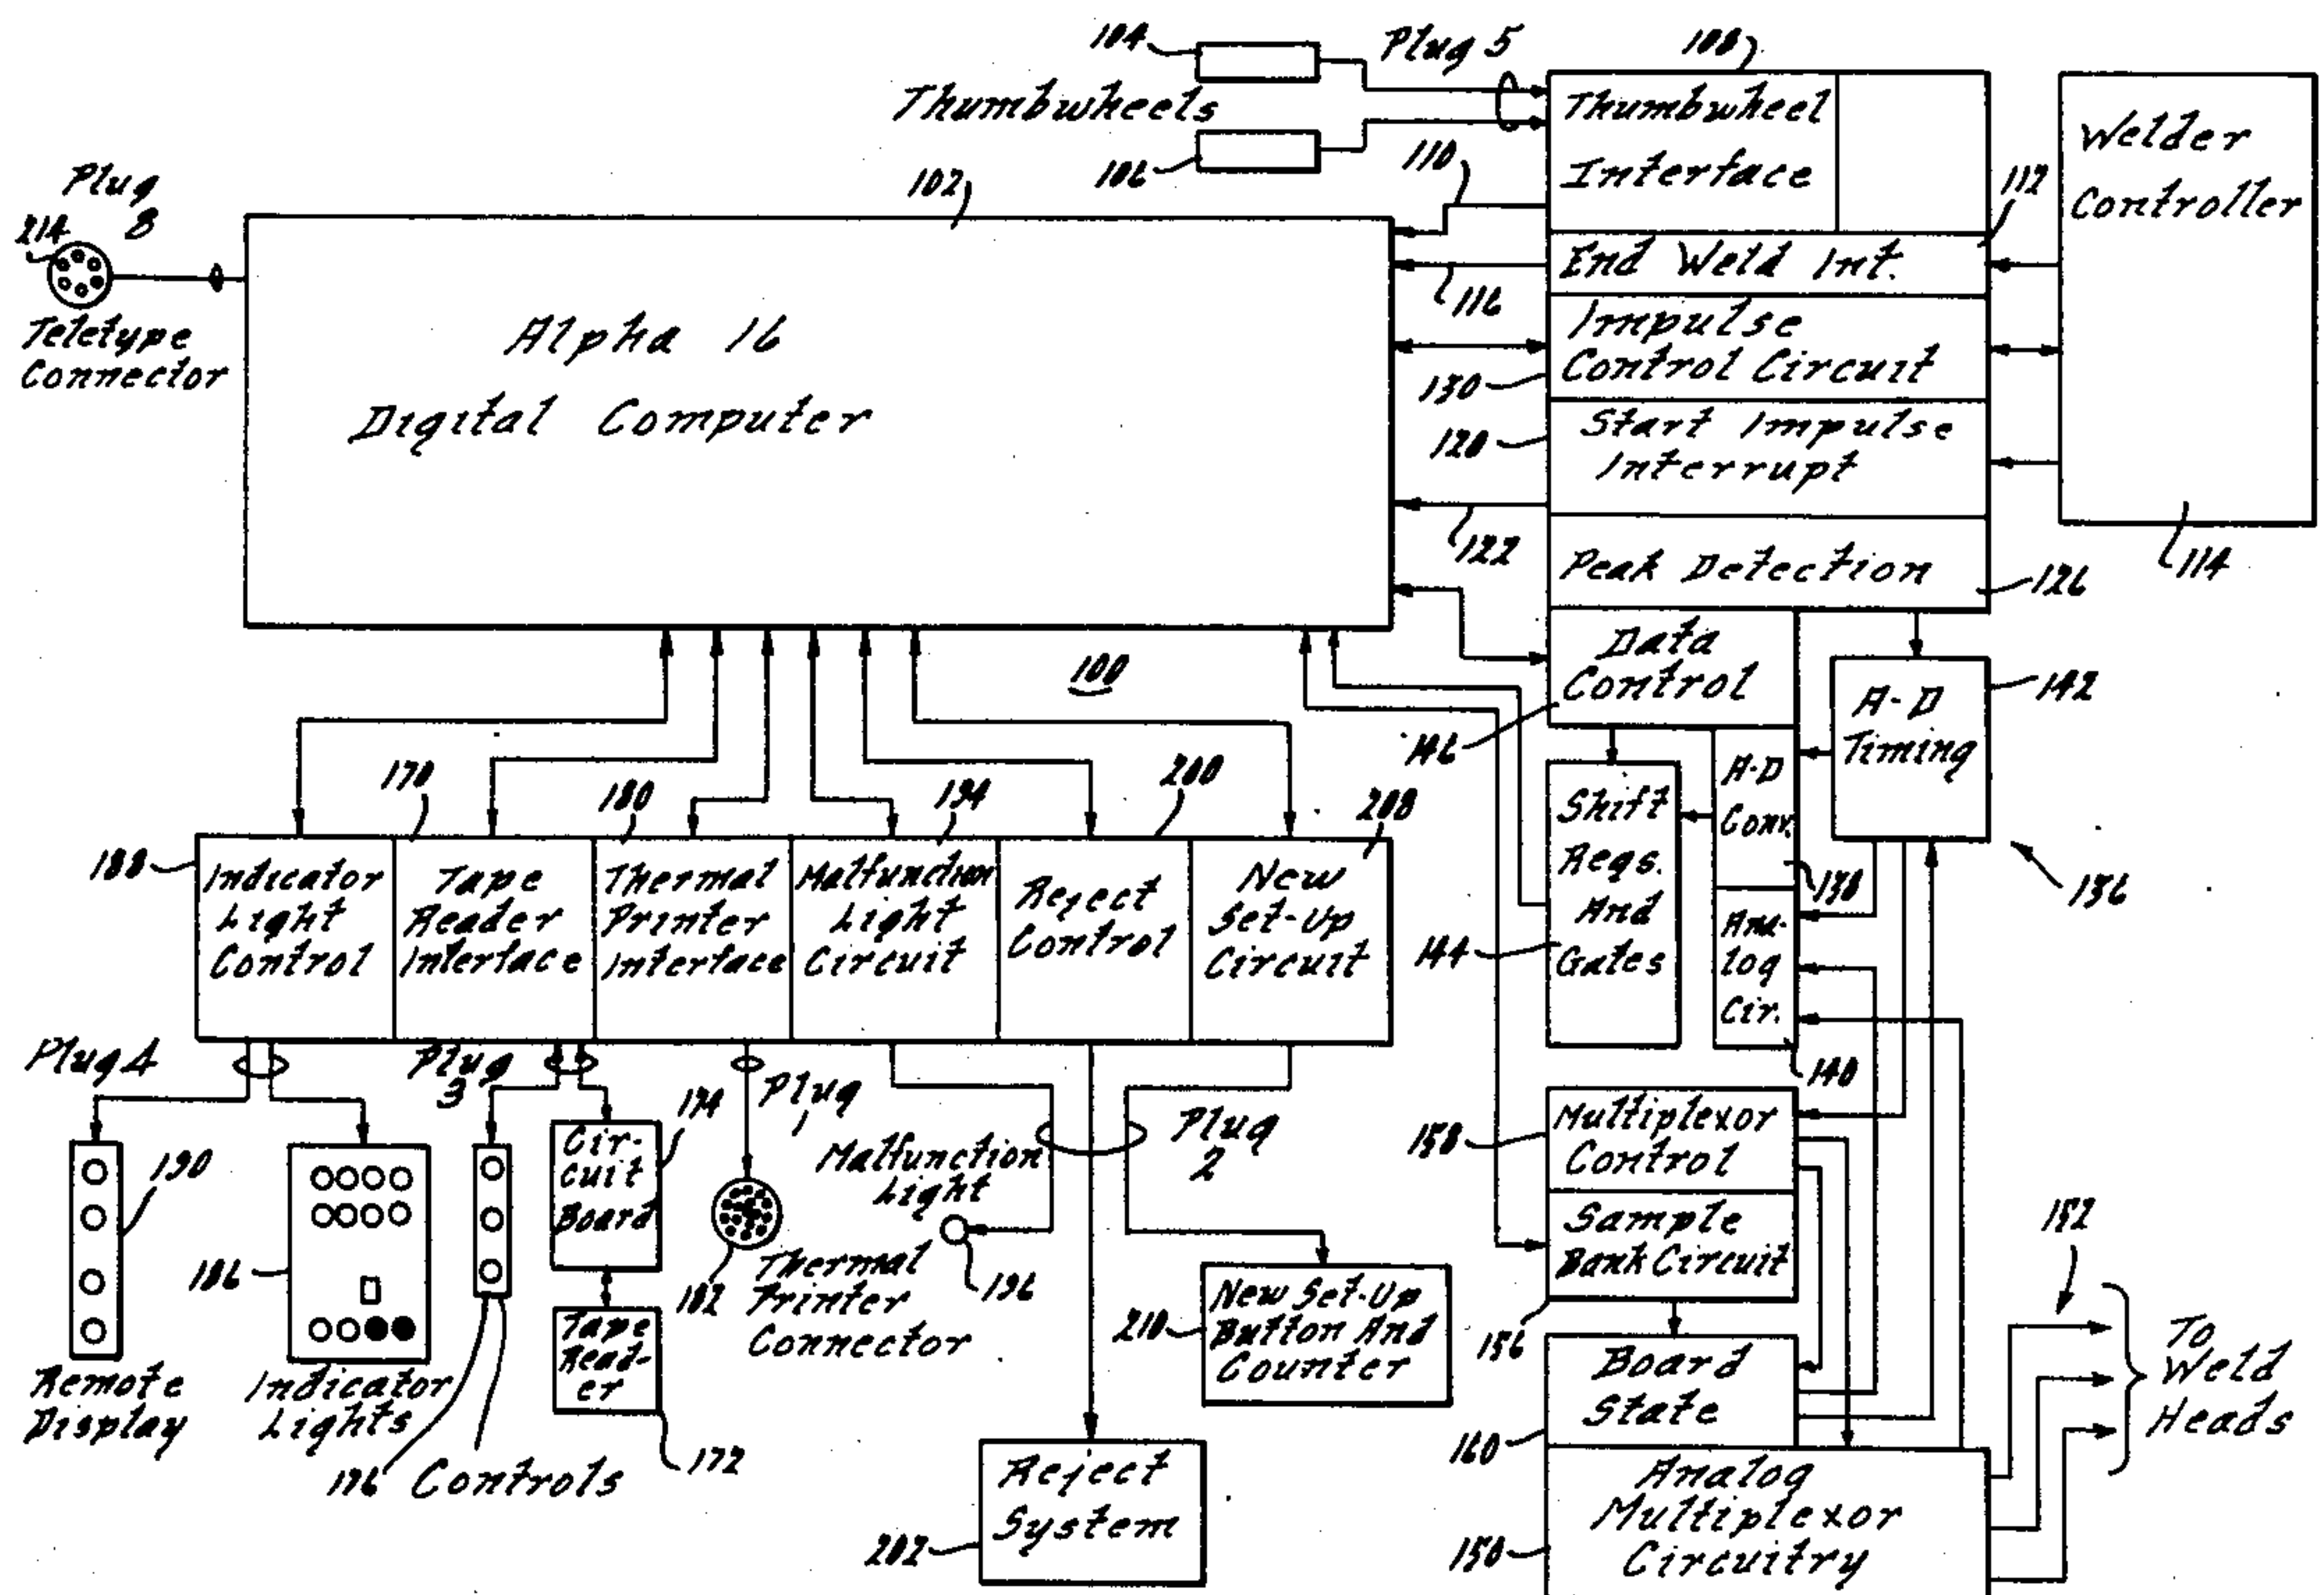 104
Plug 5
108
Thumbwheels
106
110
Thumbwheel
Interface
Welder
Controller
112
Plug
8
214
Teletype
Connector
102
Alpha 16
Digital Computer
End Weld Int.
116
Impulse
Control Circuit
130
Start Impulse
Interrupt
120
122
Peak Detection
126
114
100
Data
Control
146
A-D
Timing
142
136
A-D
Conv.
138
Shift
Regs.
And
Gates
144
Ana-
log
Cir.
140
170
180
194
200
208
188
Indicator
Light
Control
Tape
Reader
Interface
Thermal
Printer
Interface
Malfunction
Light
Circuit
Reject
Control
New
Set-Up
Circuit
Plug 4
Plug
3
Plug
1
Plug
2
190
Remote
Display
186
Indicator
Lights
176
Controls
Cir-
cuit
Board
174
Tape
Read-
er
172
182
Thermal
Printer
Connector
Malfunction
Light
196
210
New Set-Up
Button And
Counter
Reject
System
202
158
Multiplexor
Control
Sample
Bank Circuit
156
Board
State
160
Analog
Multiplexor
Circuitry
150
152
To
Weld
Heads